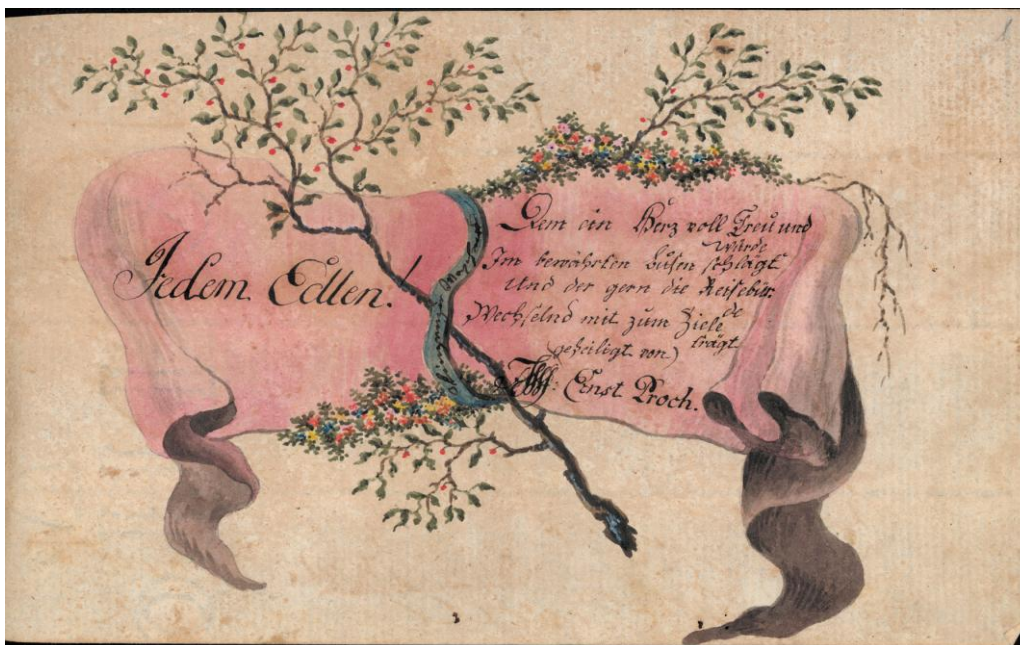 Jedem Edlen!
Dem ein Herz voll Treu und
Würde
Im bewährten Busen schlägt
Und der gern die Reisebür-
de
Wechselnd mit zum Ziele
trägt
(geheiligt von)
Ernst Proch.
1